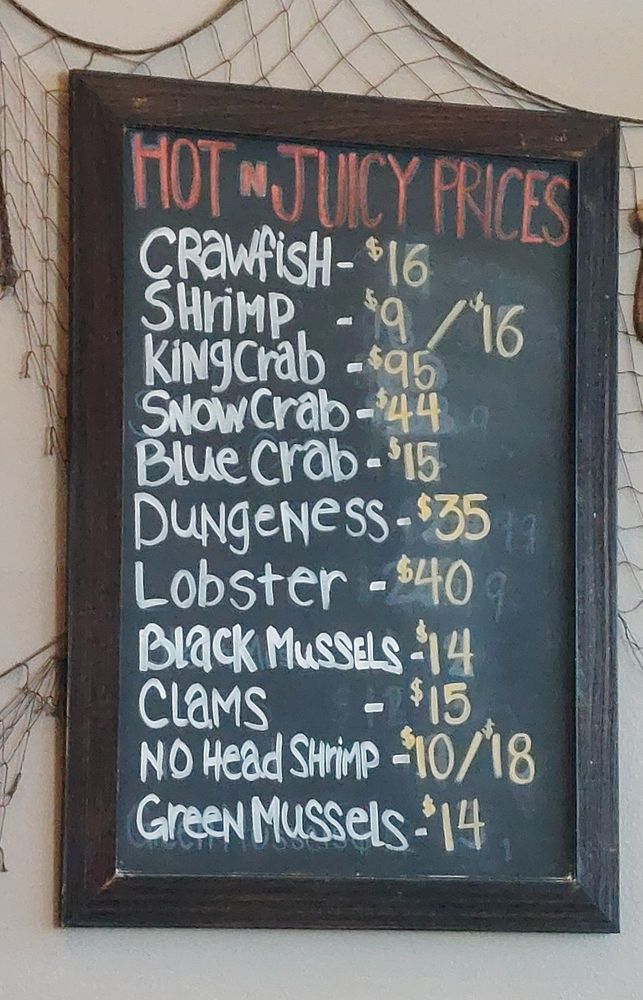 HOT N JUICY PRICES
CRawfisH - $16
SHriMp - $9 / $16
KiNgCrab - $95
SNOW Crab - $44
BLue Crab - $15
DuNgeNess - $35
Lobster - $40
BLaCK MusseLs - $14
CLaMs - $15
NO Head SHriMp - $10/$18
GreeN MusseLs - $14